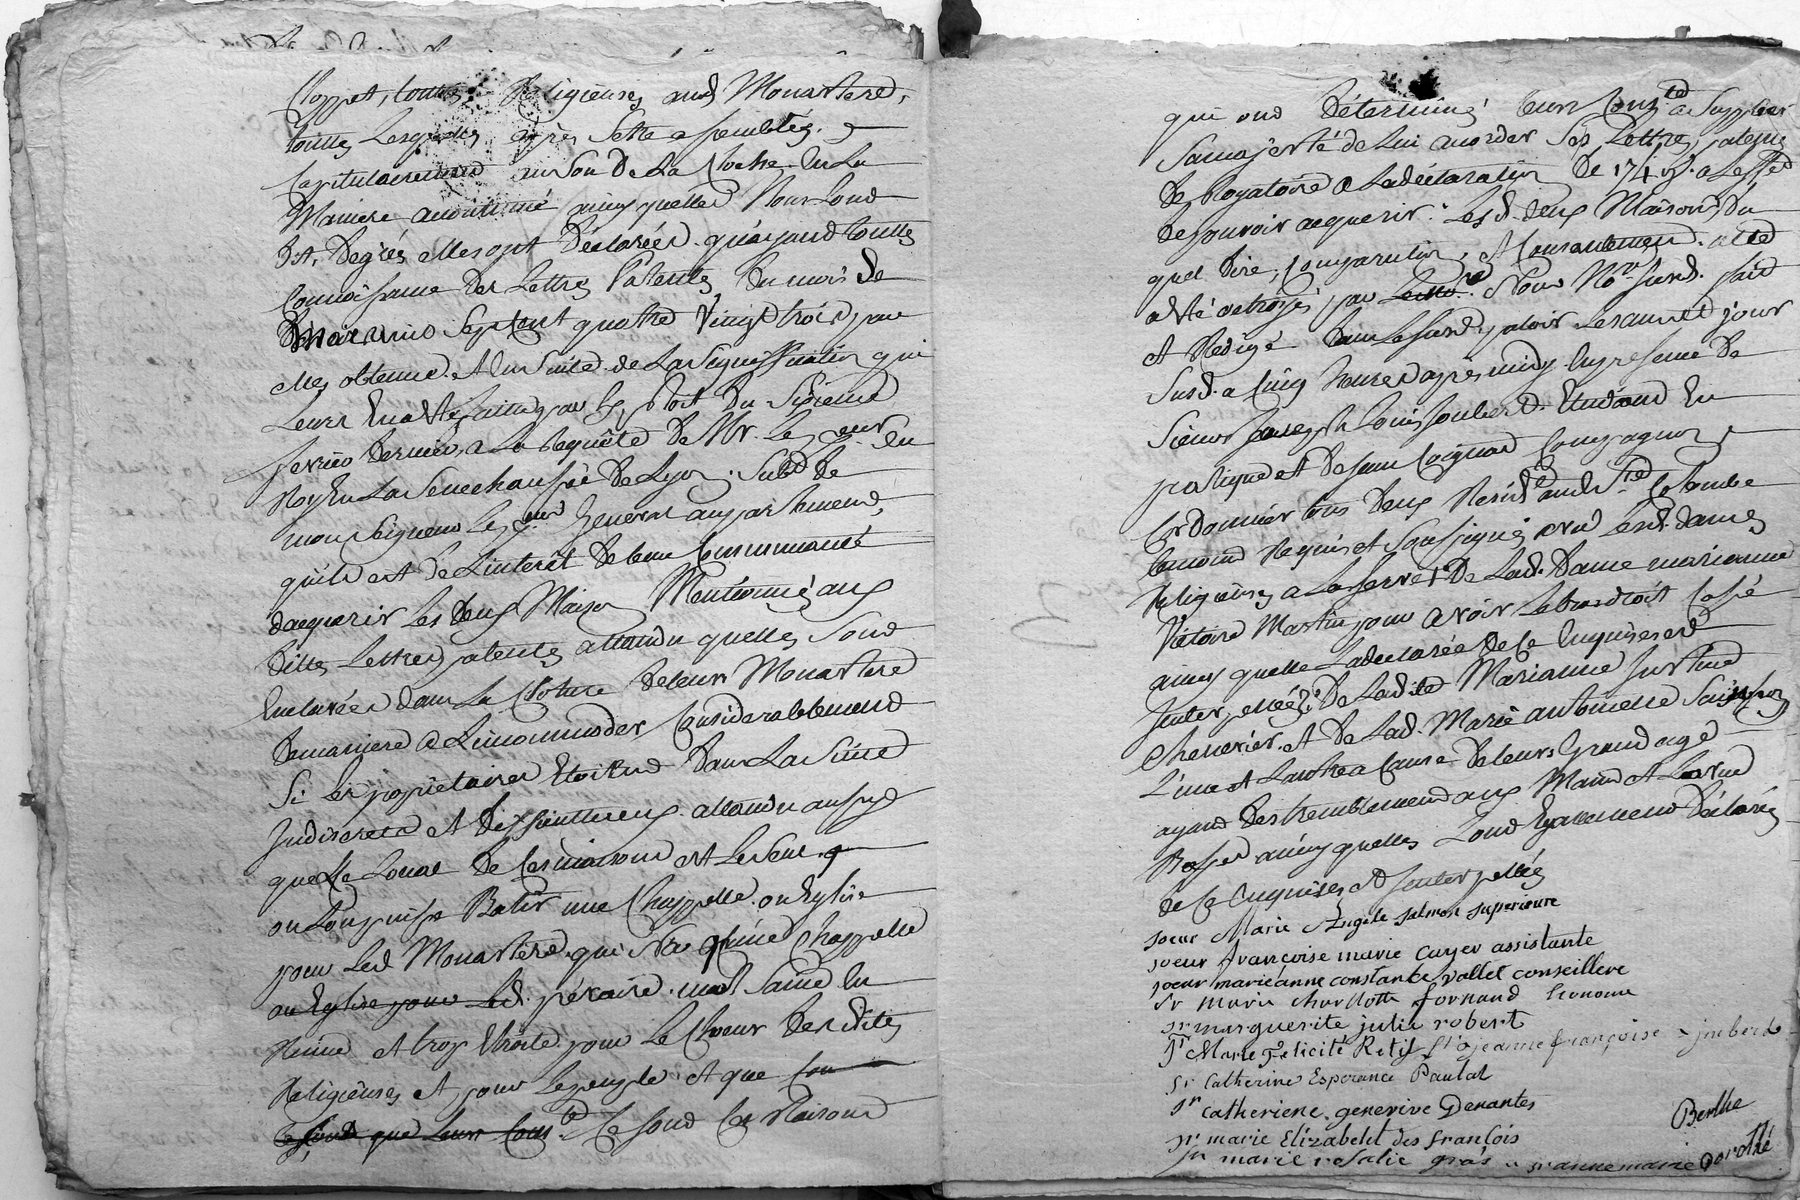 Cloppet, toutes Religieuses aud Monastere,
toutes Lesquelles après Setre assemblées
Capitulairement au Son De La Cloche En La
Maniere accoutumé ainsy quelles Nous Lont
Dit, De grés elles ont Déclarées quayant touttes
Connoissance Des Lettres Patentes Du mois de
Mars mil Sept Cent quatre Vingt trois par
elles obtenue Et En Suite de La Signiffication qui
Leurs En a Eté faitte par Exploit Du Sixieme
fevrier Dernier, a La Requête De Mr. Le procureur Du
Roy En La Senechaussée De Lyon Subd De
monseigneur Le procureur General au parlement,
quil est De Linterêt De leur Communauté
dacquerir Les Deux Maison Mentionné aux
Dittes Lettres patentes attandu quelles Sont
Enclavées dans La Cloture De leurs Monastere
De maniere a Lincommoder Considerablement
Si Les propriétaires Etoient Dans La Suite
Indiscrets et Dessentieux attandu aussy
que Le Local De Ces maisons est Le Seul
ou Lon puisse Batir une Chappelle ou Eglise
pour Led Monastère qui Na quune Chappelle
ou Eglise pour Led. précaire mal Saine En
Ruine et trop Etroite pour Le Choeur Des dites
Religieuses et pour Le peuple et que
Ce Sont que Leur Comté Ce Sont Ces Raisons
qui ont Déterminé leur Comté a Supplier
Sa majesté de Lui accorder Ses Lettres patentes
De Rogatoire a La déclaration De 1749 a Leffet
De pouvoir acquerir Lesd. deux Maisons, Du
quel Dire, Comparution, et Consantement acte
a été octroyé par Nous No.re Susd. fait
et Redigé Dans Le Susd. parloir Les an et jour
Susd. a Cinq heures après midy En presence De
Sieur Joseph Louis Etudiant En
pratique et De Jean Coignat Compagnon
Cordonnier tous Deux Resid.t aud. Ste. Colombe
temoins Requis et Soussignés avec Lesd. dames
Religieuses a La Reserve De Lad. Dame marianne
Victoire Martin pour avoir Le bras droit Cassé
ainsy quelle La declarée De Ce Enquise et
Interpellée, De Ladite Marianne Justine
Chenevier et De Lad. Marie antoinette
Lune et Lautre a Cause De leurs Grand age
ayant Des tremblement aux Mains et La vue
Basse ainsy quelles Lont Egallement Déclarés
de Ce Enquises et Interpellés
soeur Marie Angele salmon superieure
soeur françoise marie cuyer assistante
soeur marieanne constance vallet conseillere
Sr marie charlotte fornand Econome
sr marguerite julie robert
Sr Marie Felicité Retif Sr jeanne françoise jmbert
Sr Catherine Esperance Paulat
Sr catheriene genevive Denantes
Berthe
Sr marie Elizabeht des françois
Sr marie rosalie gras sr anne marie Dorothé